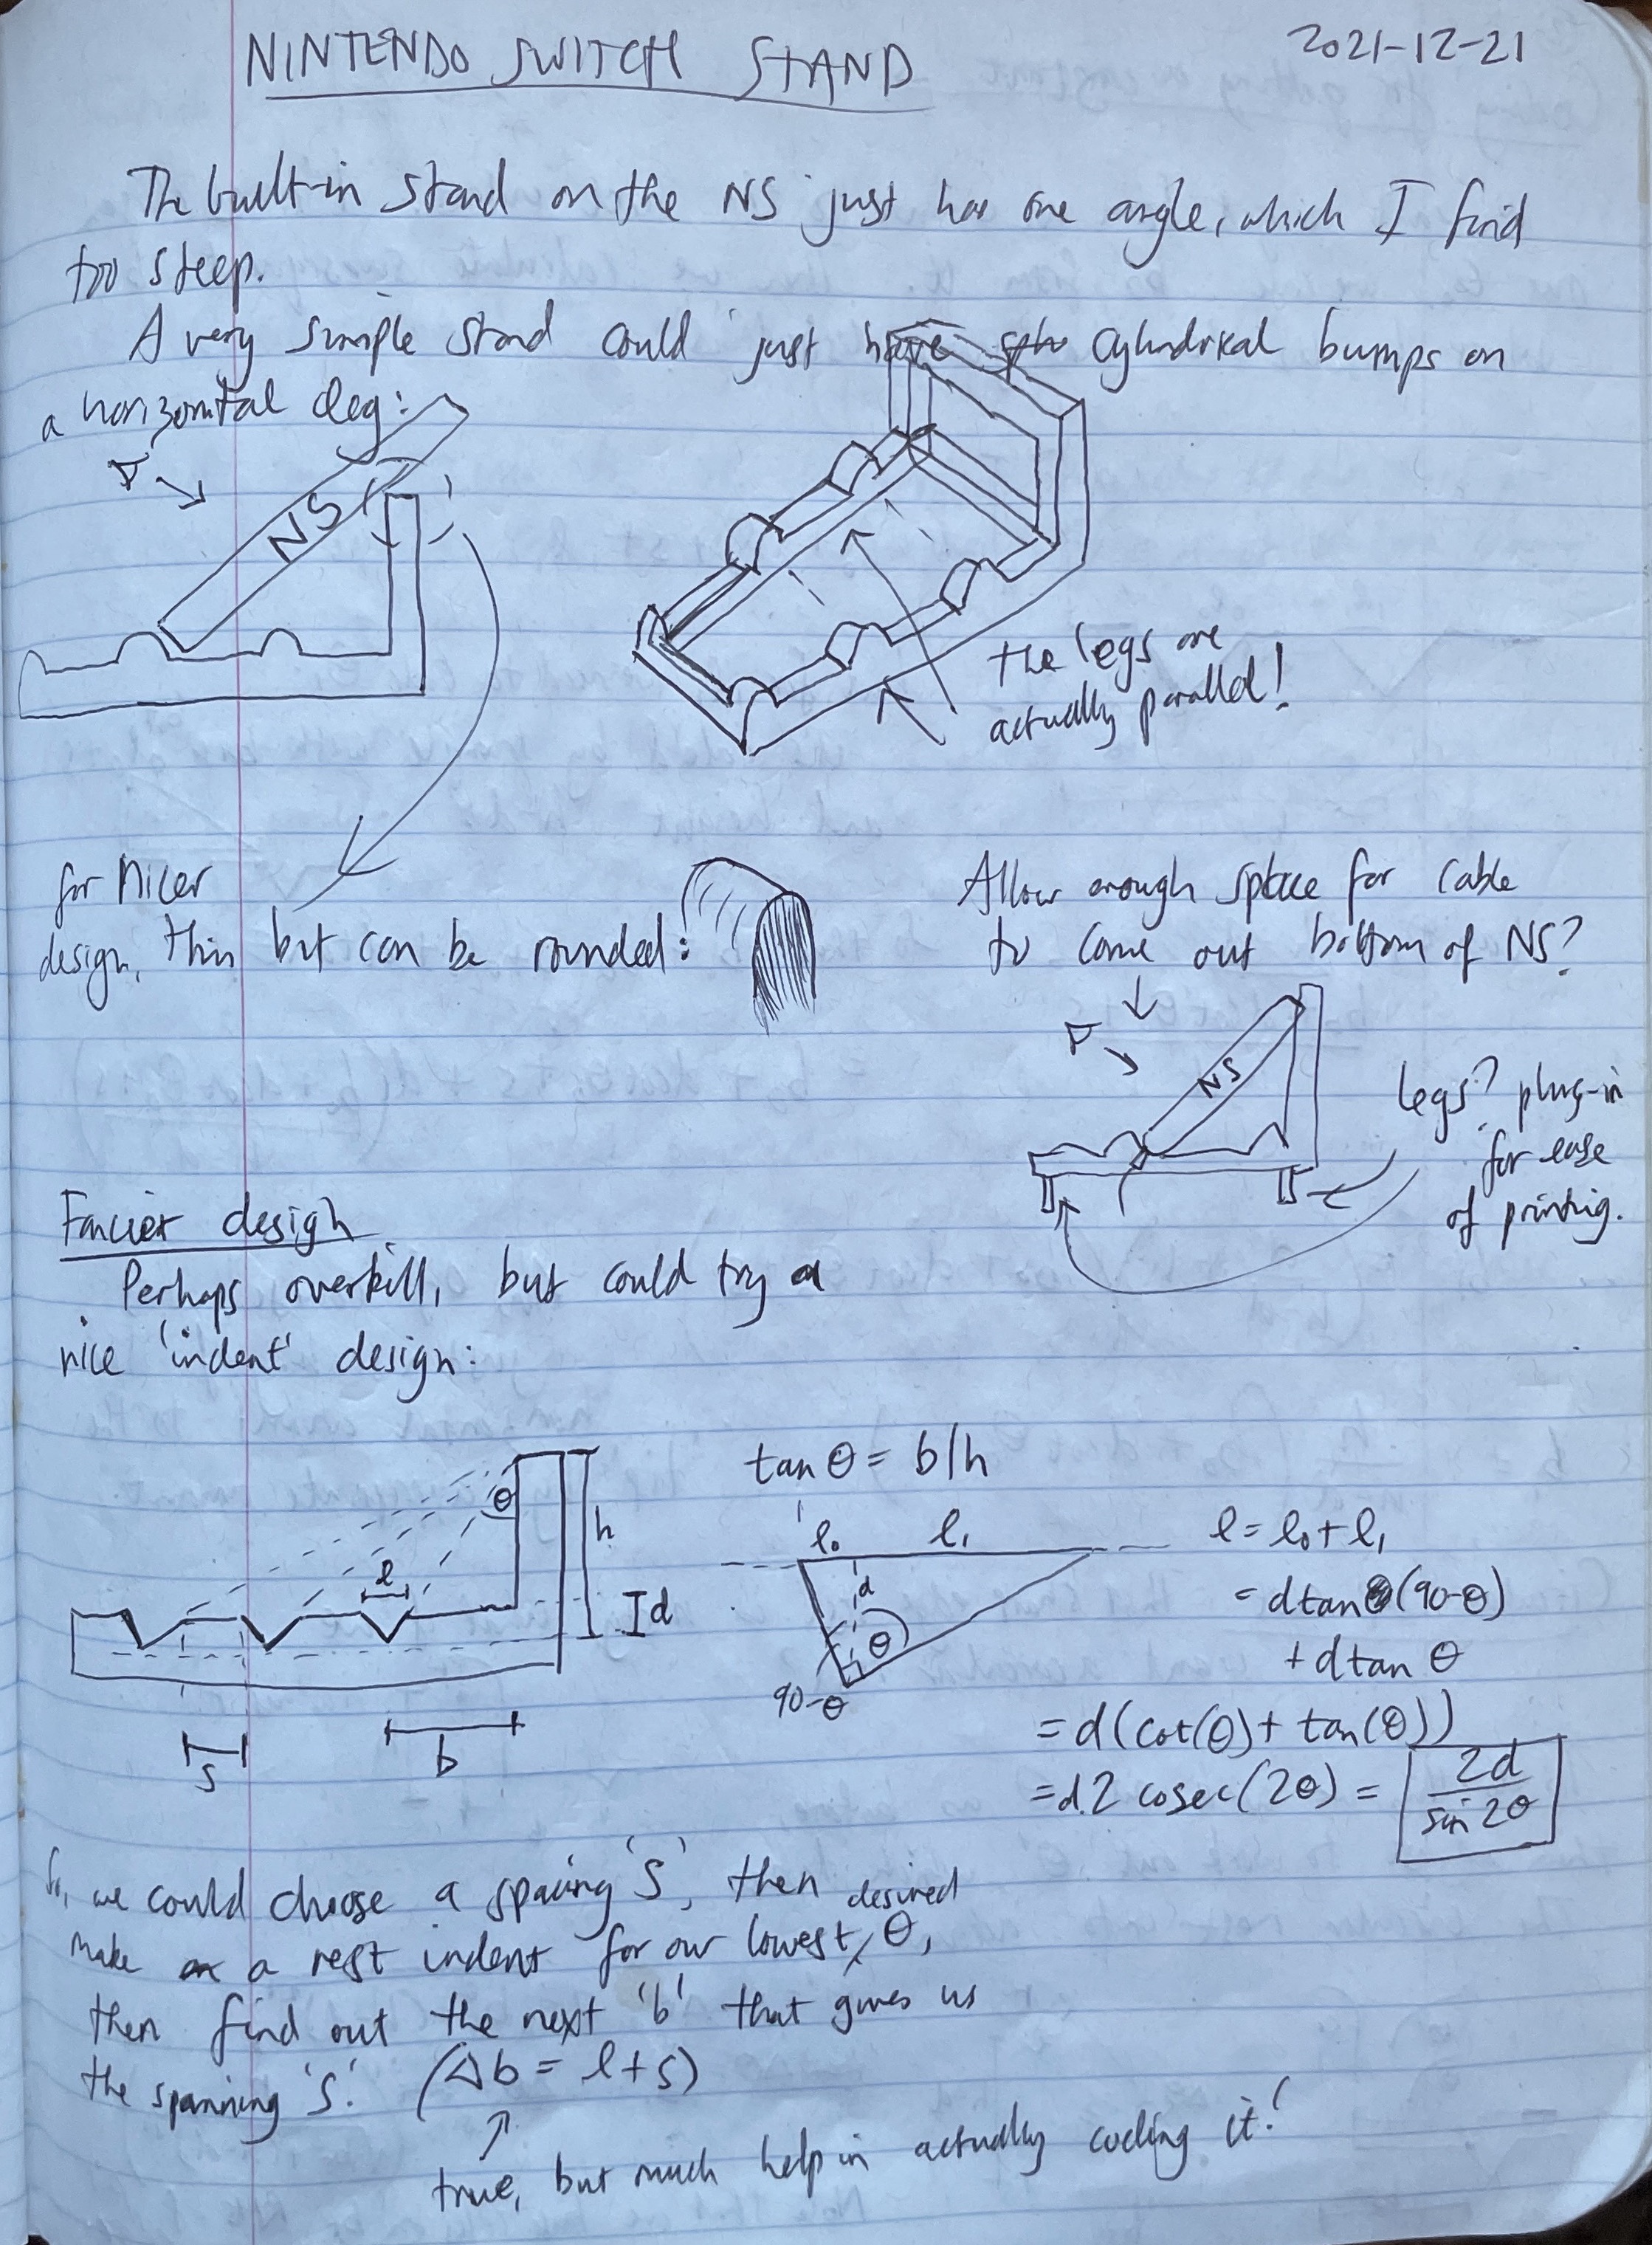 NINTENDO SWITCH STAND
2021-12-21
The built-in stand on the NS just has one angle, which I find
too steep.
A very simple stand could just have cylindrical bumps on
a horizontal leg:
NS
the legs are
actually parallel!
for nicer
design, thin but can be rounded:
Allow enough space for cable
to come out bottom of NS?
NS
legs? plug-in
for ease
of printing.
Fancier design
Perhaps overkill, but could try a
nice 'indent' design:
θ
h
l
d
s
b
tan θ = b/h
l₀ l₁
d
θ
90-θ
l = l₀ + l₁
= d tan (90-θ)
+ d tan θ
= d (cot(θ) + tan(θ))
= d.2 cosec(2θ) = 2d / sin 2θ
So, we could choose a spacing 's', then
make a rest indent for our lowest desired θ,
then find out the next 'b' that gives us
the spanning 's'. (Δb = l + s)
true, but much help in actually coding it!